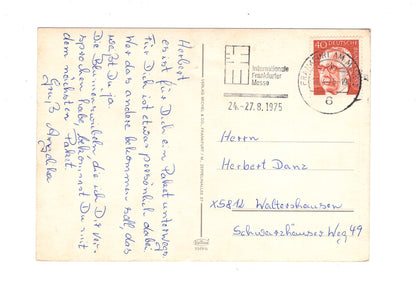 Herbert
es ist für Dich ein Paket unterwegs.
Für Dich ist etwas persönlich dabei
Wer das andere bekommen soll, das
weißt Du ja.
Die Blumenzwiebeln, die ich Dir ver-
sprochen habe bekommst Du mit
dem nächsten Paket.
Gruß Angelika
Internationale
Frankfurter
Messe
24.-27.8.1975
FRANKFURT AM MAIN
6
40 DEUTSCHE
Herrn
Herbert Danz
X5812 Waltershausen
Schwarzhäuser Weg 49